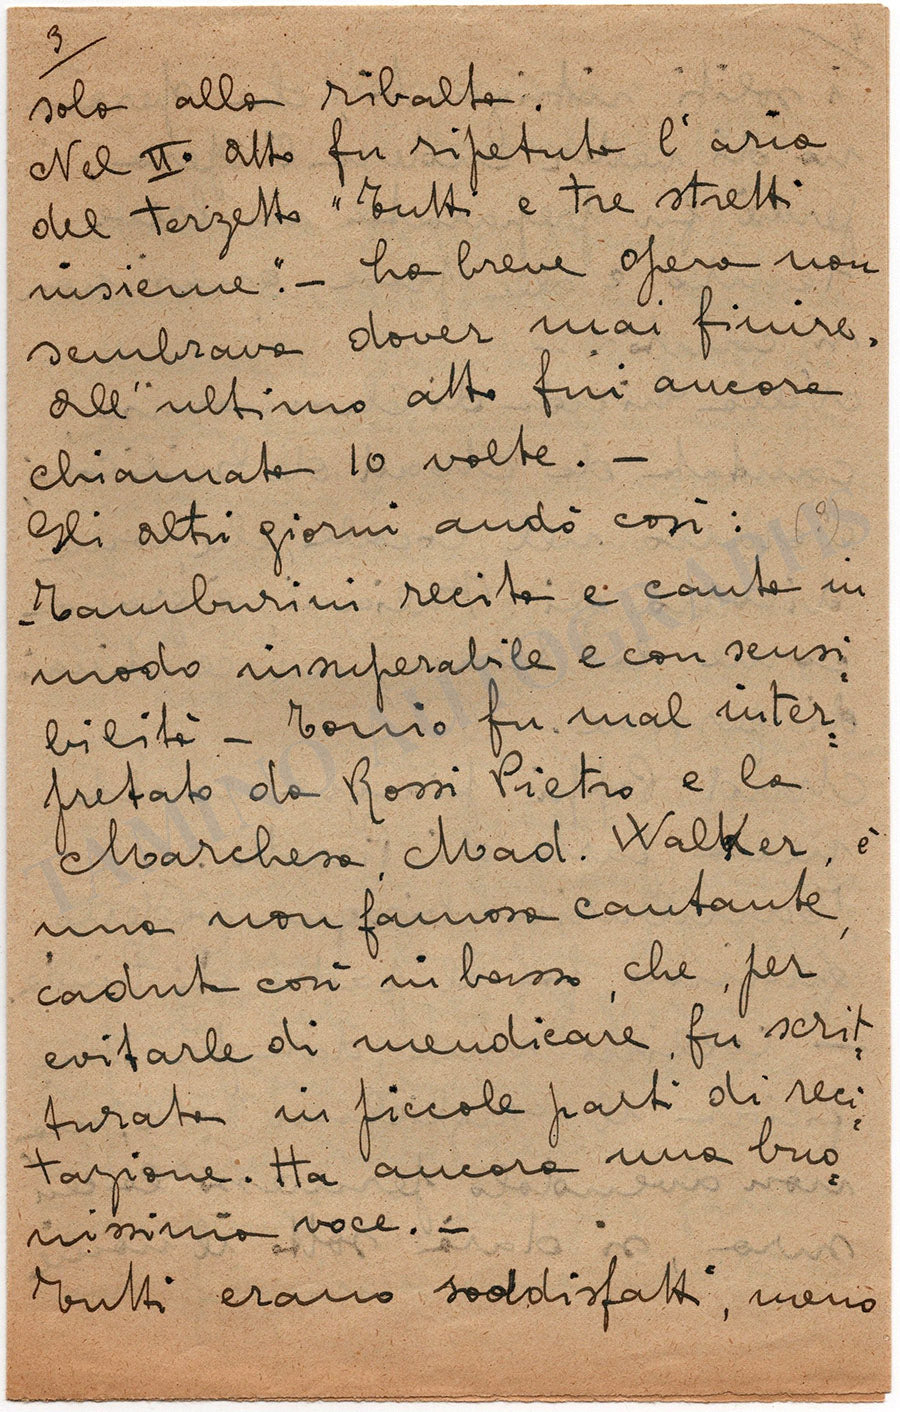 3
solo alla ribalta.
Nel II° Atto fu ripetuta l'aria
del terzetto "Tutti e tre stretti
insieme".- La breve opera non
sembrava dover mai finire.
All'ultimo atto fui ancora
chiamata 10 volte. -
Gli altri giorni andò così: (?)
-Tamburini recita e canta in
modo insuperabile e con sensi=
bilità - Tonio fu mal inter=
pretato da Rossi Pietro e la
Marchesa, Mad. Walker, è
una non famosa cantante,
caduta così in basso, che, per
evitarle di mendicare, fu scrit=
turata in piccole parti di reci=
tazione. Ha ancora una buo=
nissima voce. -
Tutti erano soddisfatti, meno
TAMINO AUTOGRAPHS